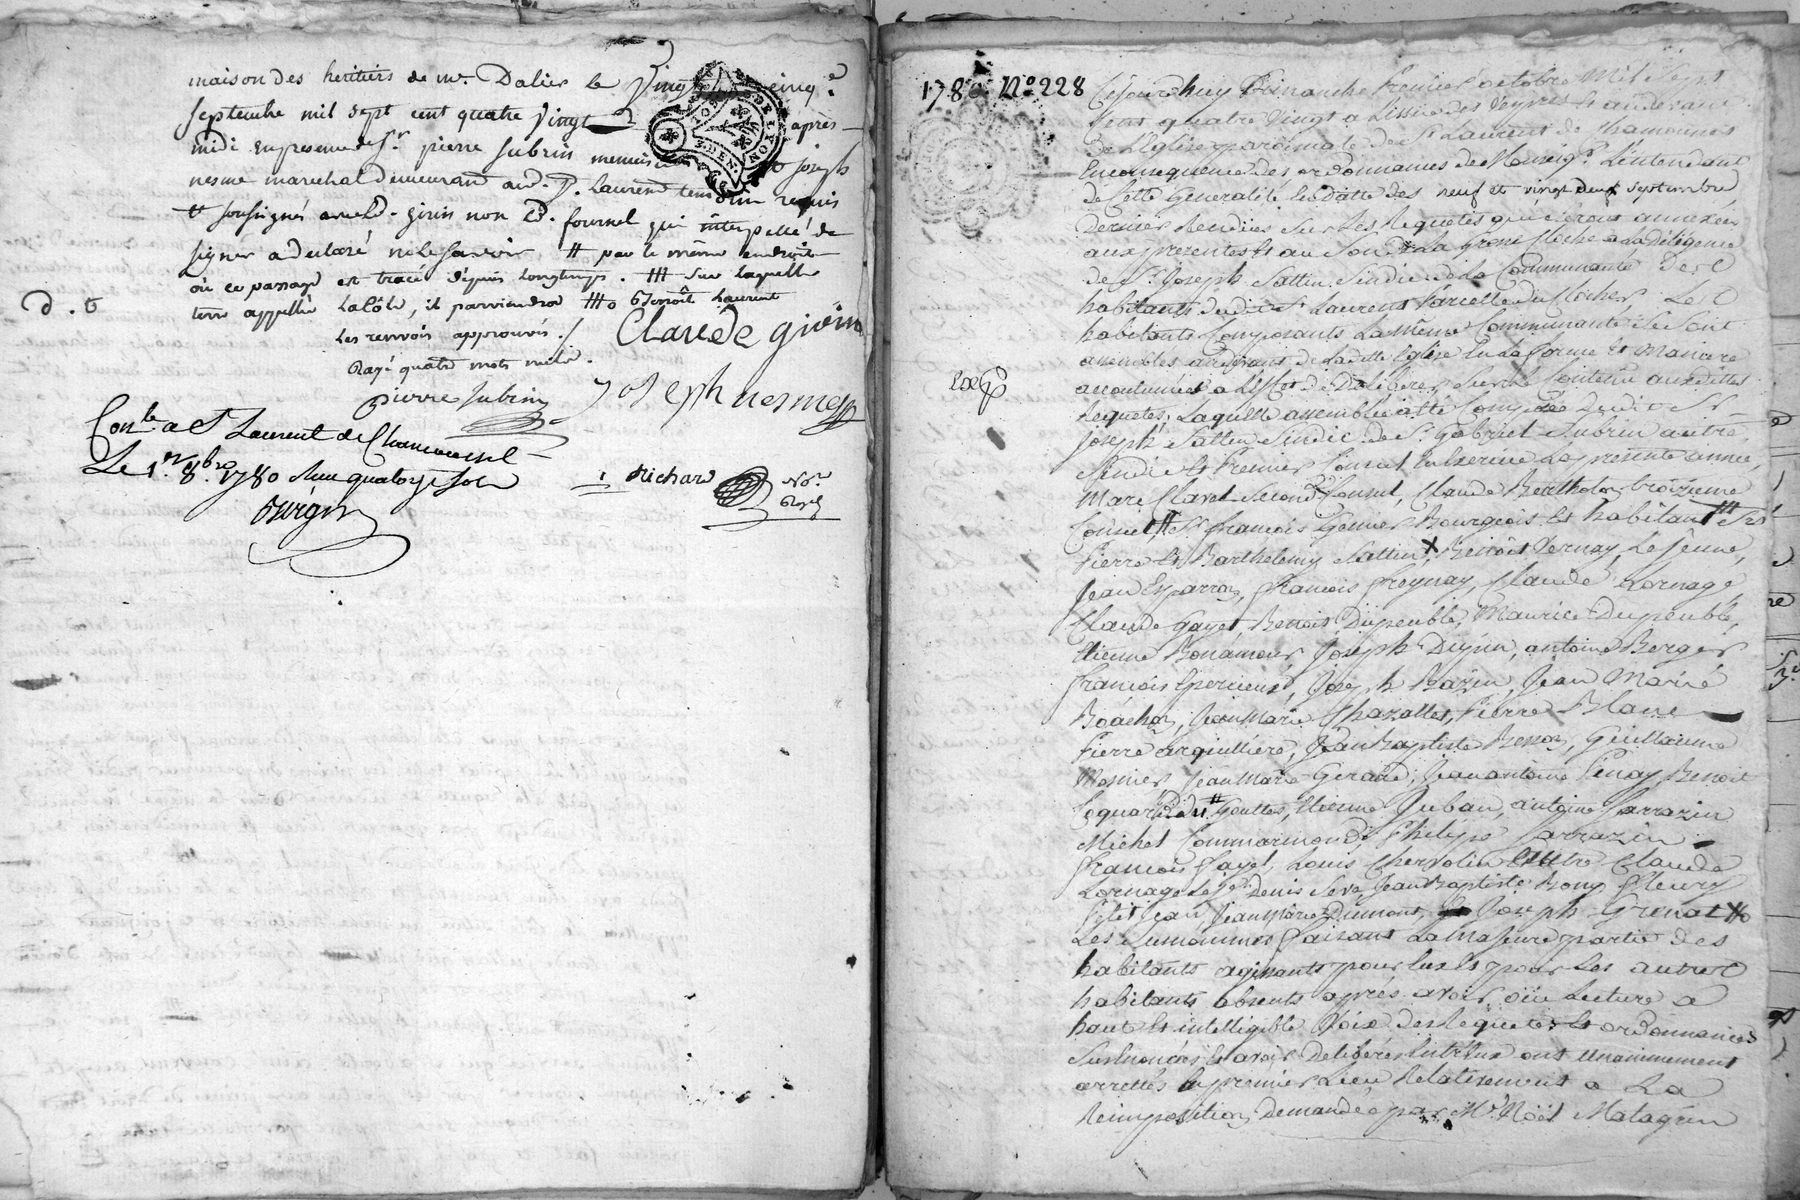 maison des heritiers de mr. Dalier le vingt cinq e
septembre mil sept cent quatre vingt après
midi en presence de Sr. pierre Subrin menuisier et joseph
nesme marechal demeurant aud. St. Laurent temoins requis
et soussignés avec led. girin non led. fournel qui interpellé de
signer a declaré ne le savoir # par le même endroit
où ce passage est tracé depuis longtemps. ## sur laquelle
terre appellée la côte, il parviendra ##o Benoît Laurent
Les renvois approuvés./
Rayé quatre mots nuls.
D. t
Claude girin
pierre Subrin
Joseph nesme
Conlé a St Laurent de Chamousset
Le 1er. 8bre. 1780 Reçu quatorze sols
Richard
Nore
Royal
1780 No 228
Cejourdhuy Dimanche Premier octobre Mil Sept
Cent quatre Vingt a L'issüe des Vepres et audevant
de L'Eglise paroissiale de St Laurent de Chamousset
En consequence des ordonnances de Monseigr. L'intendant
de Cette Generalité en datte des neuf et vingt deux septembre
Dernier Rendües sur les Requetes qui seront annexées
aux presentes et au son de La Grosse Cloche a La diligence
de Sr. Joseph Sattin Sindic de la Communauté des
habitants dudit St Laurent Parcelle du Clocher Les
habitants Composants La même Communauté se sont
assemblés audevant de Laditte Eglise En la forme et Maniere
accoutumées a L'effet de Deliberer sur le Contenu auxdittes
Requetes, Laquelle assemblée a été Composée dudit Sr
Joseph Sattin Sindic de Sr. Gabriel Subrin autre
Sindic et Premier Consul En exercice La presente année,
Marc Clavel Second Consul, Claude Berthelon troizieme
Consul # Sr. François Genier Bourgeois et habitant ## Srs
Pierre et Barthelemy Sattin X Benoît Vernay Le Jeune,
Jean Esparron, François Freynay, Claude Lornage
Claude Gayet, Benoit Dupeuble, Maurice Dupeuble,
Etienne Bonamour, Joseph Dupin, antoine Berger
François Epercieux, Joseph Bazin, Jean Marie
Boachon, Jean Marie Chazallet, Pierre Blanc
Pierre Arquilliére, Jean Baptiste Besson, Guillaume
Mosnier, Jean Marie Gerard, Jean antoine Pinay, Benoit
Coquard # Gouttes, Etienne Juban, antoine Sarrazin
Michel Commarmond Philippe Sarrazin
François Gayet, Louis Chervolin autre Claude
Lornage Denis Seve, Jean Baptiste Bony Fleury
Petit Jean, Jean Marie Dumont, Joseph Grenat Xo
Les Susnommés faisant La Majeure partie des
habitants agissants pour Eux et pour Les autres
habitants absents apres avoir oüi Lecture a
haute et intelligible Voix des Requetes et ordonnances
Susenoncées et avoir deliberés Entr'eux ont Unanimement
arrettés En premier Lieu Relativement a La
Reimposition Demandée par Mr. Noël Matagrin